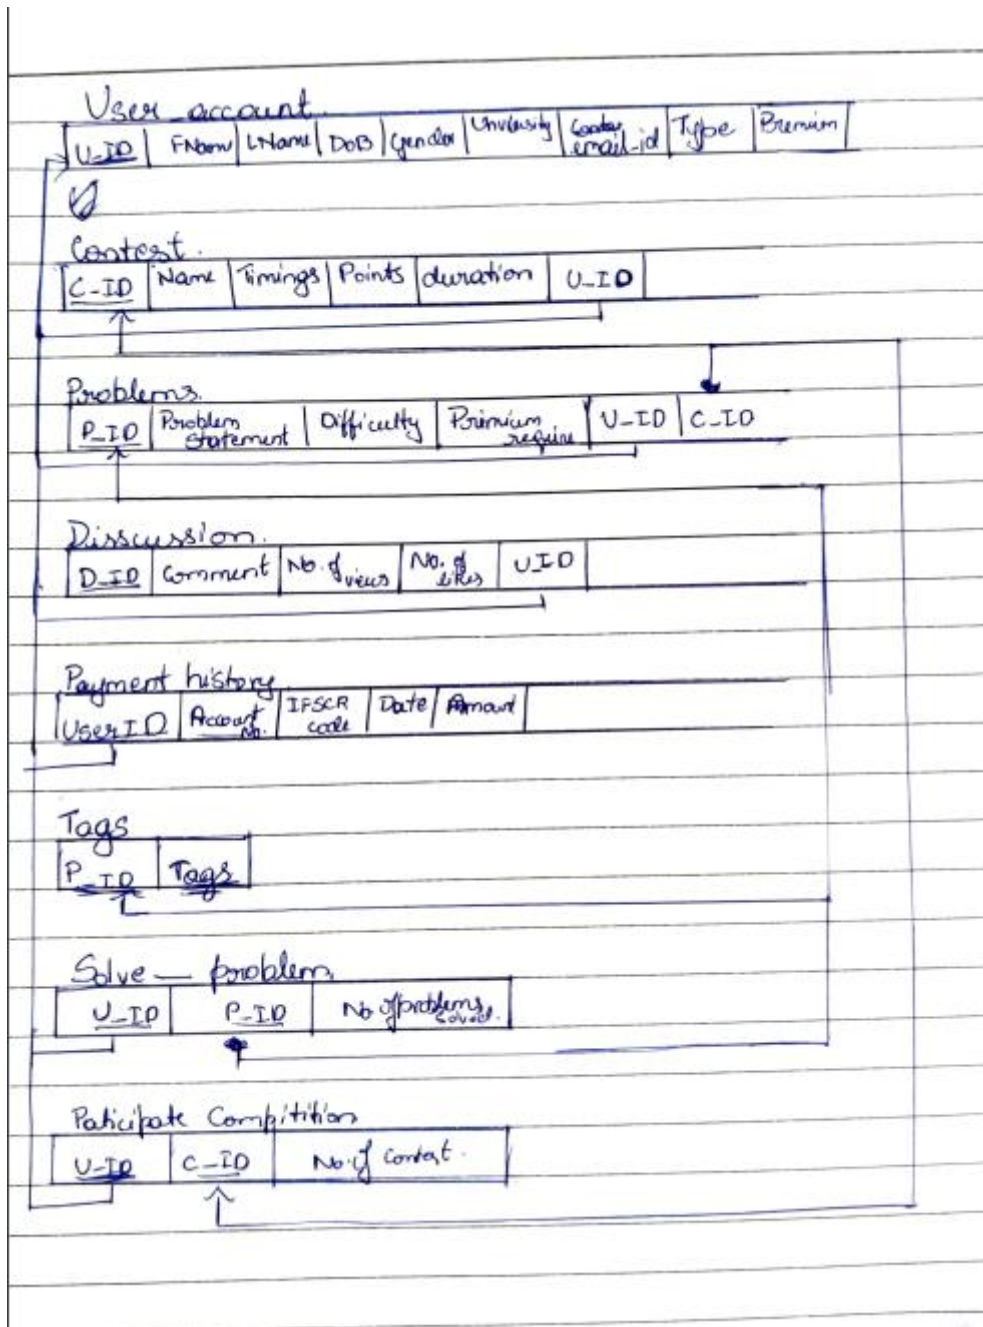 User_account.
U_ID FName LName DoB Gender University email_id Type Premium
Contest.
C-ID Name Timings Points duration U_ID
Problems.
P_ID Problem Statement Difficulty Primium require U-ID C_ID
Disscussion.
D_ID Comment No. of views No. of likes UID
Payment history
UserID Account No. IFSCR code Date Amount
Tags
P_ID Tags
Solve_problem
U_ID P_ID No of problems solved.
Paticipate Compitition
U-ID C_ID No. of Contest.